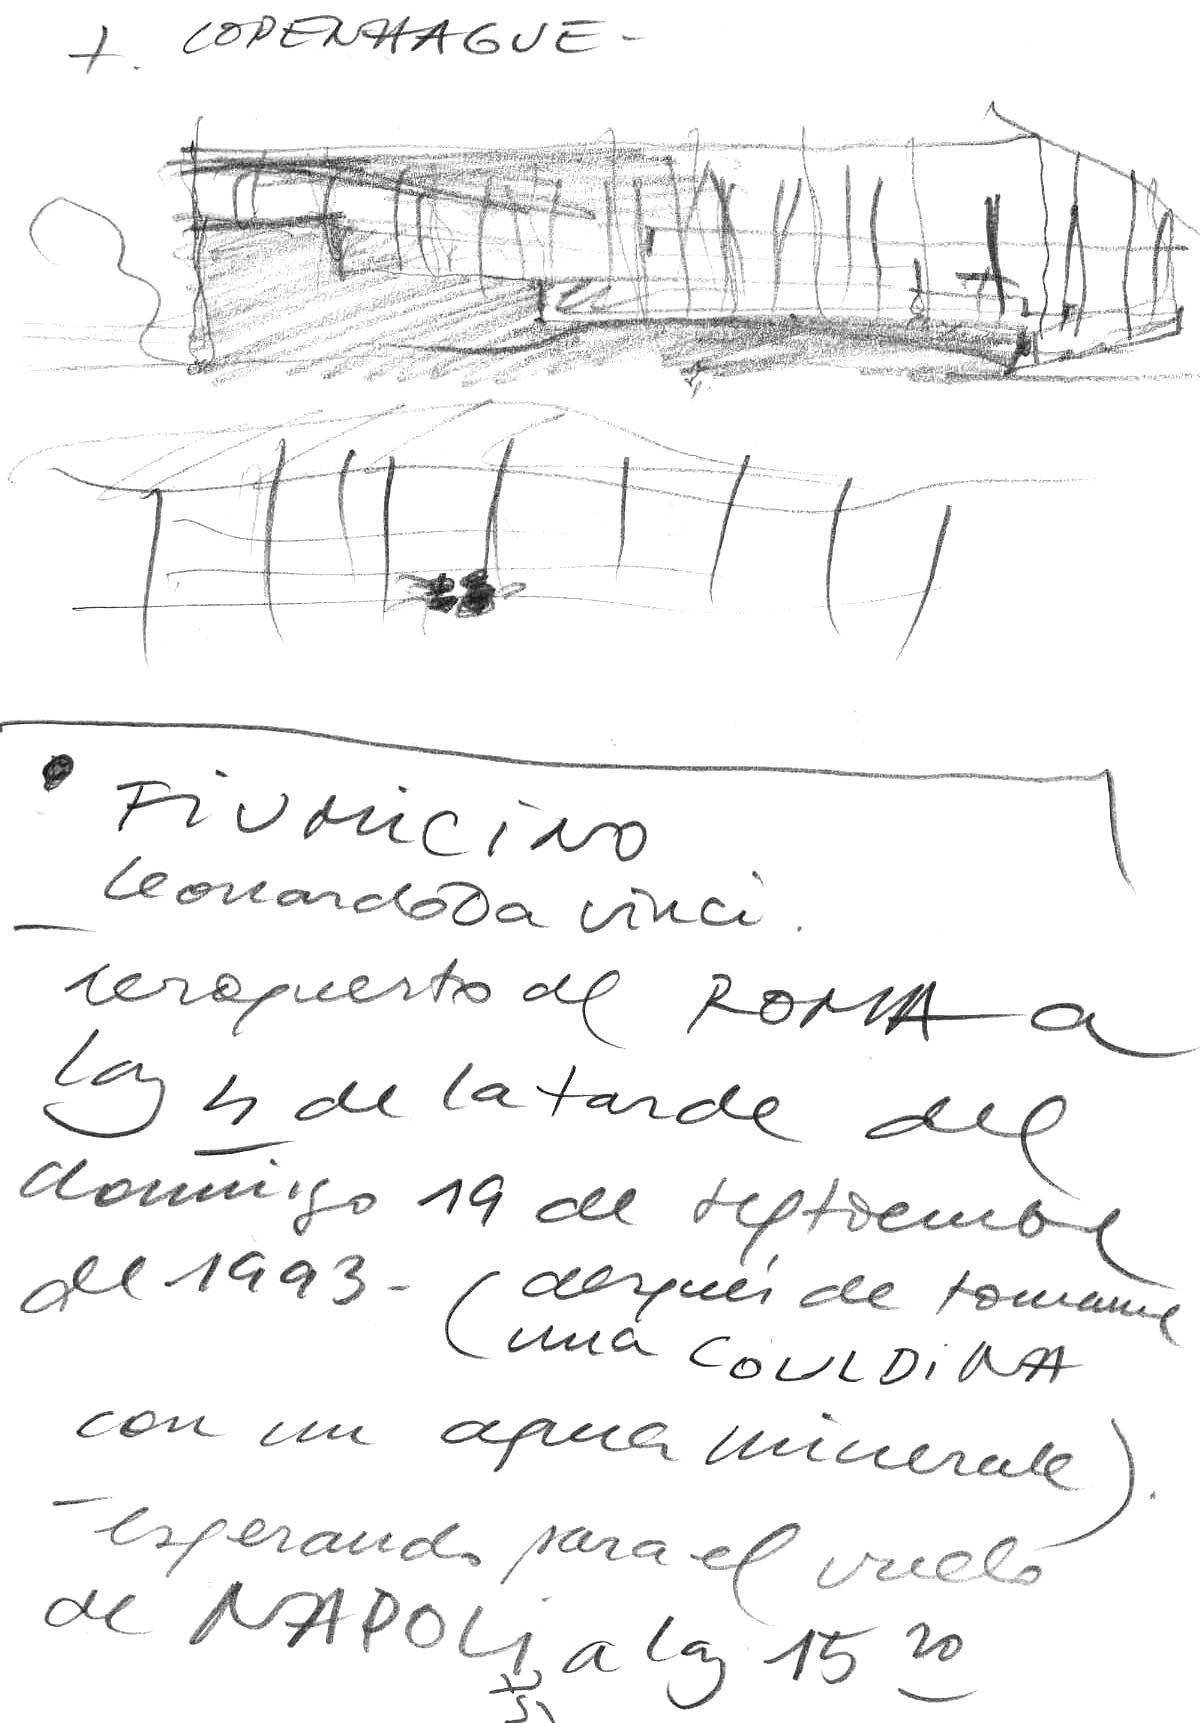 +. COPENHAGUE-
FIUMICINO
Leonardo Da Vinci.
aeropuerto de ROMA a
las 4 de la tarde del
domingo 19 de septiembre
de 1993- (después de tomarme
una COULDINA
con un agua minerale).
- esperando para el vuelo
de NAPOLI a las 15 20